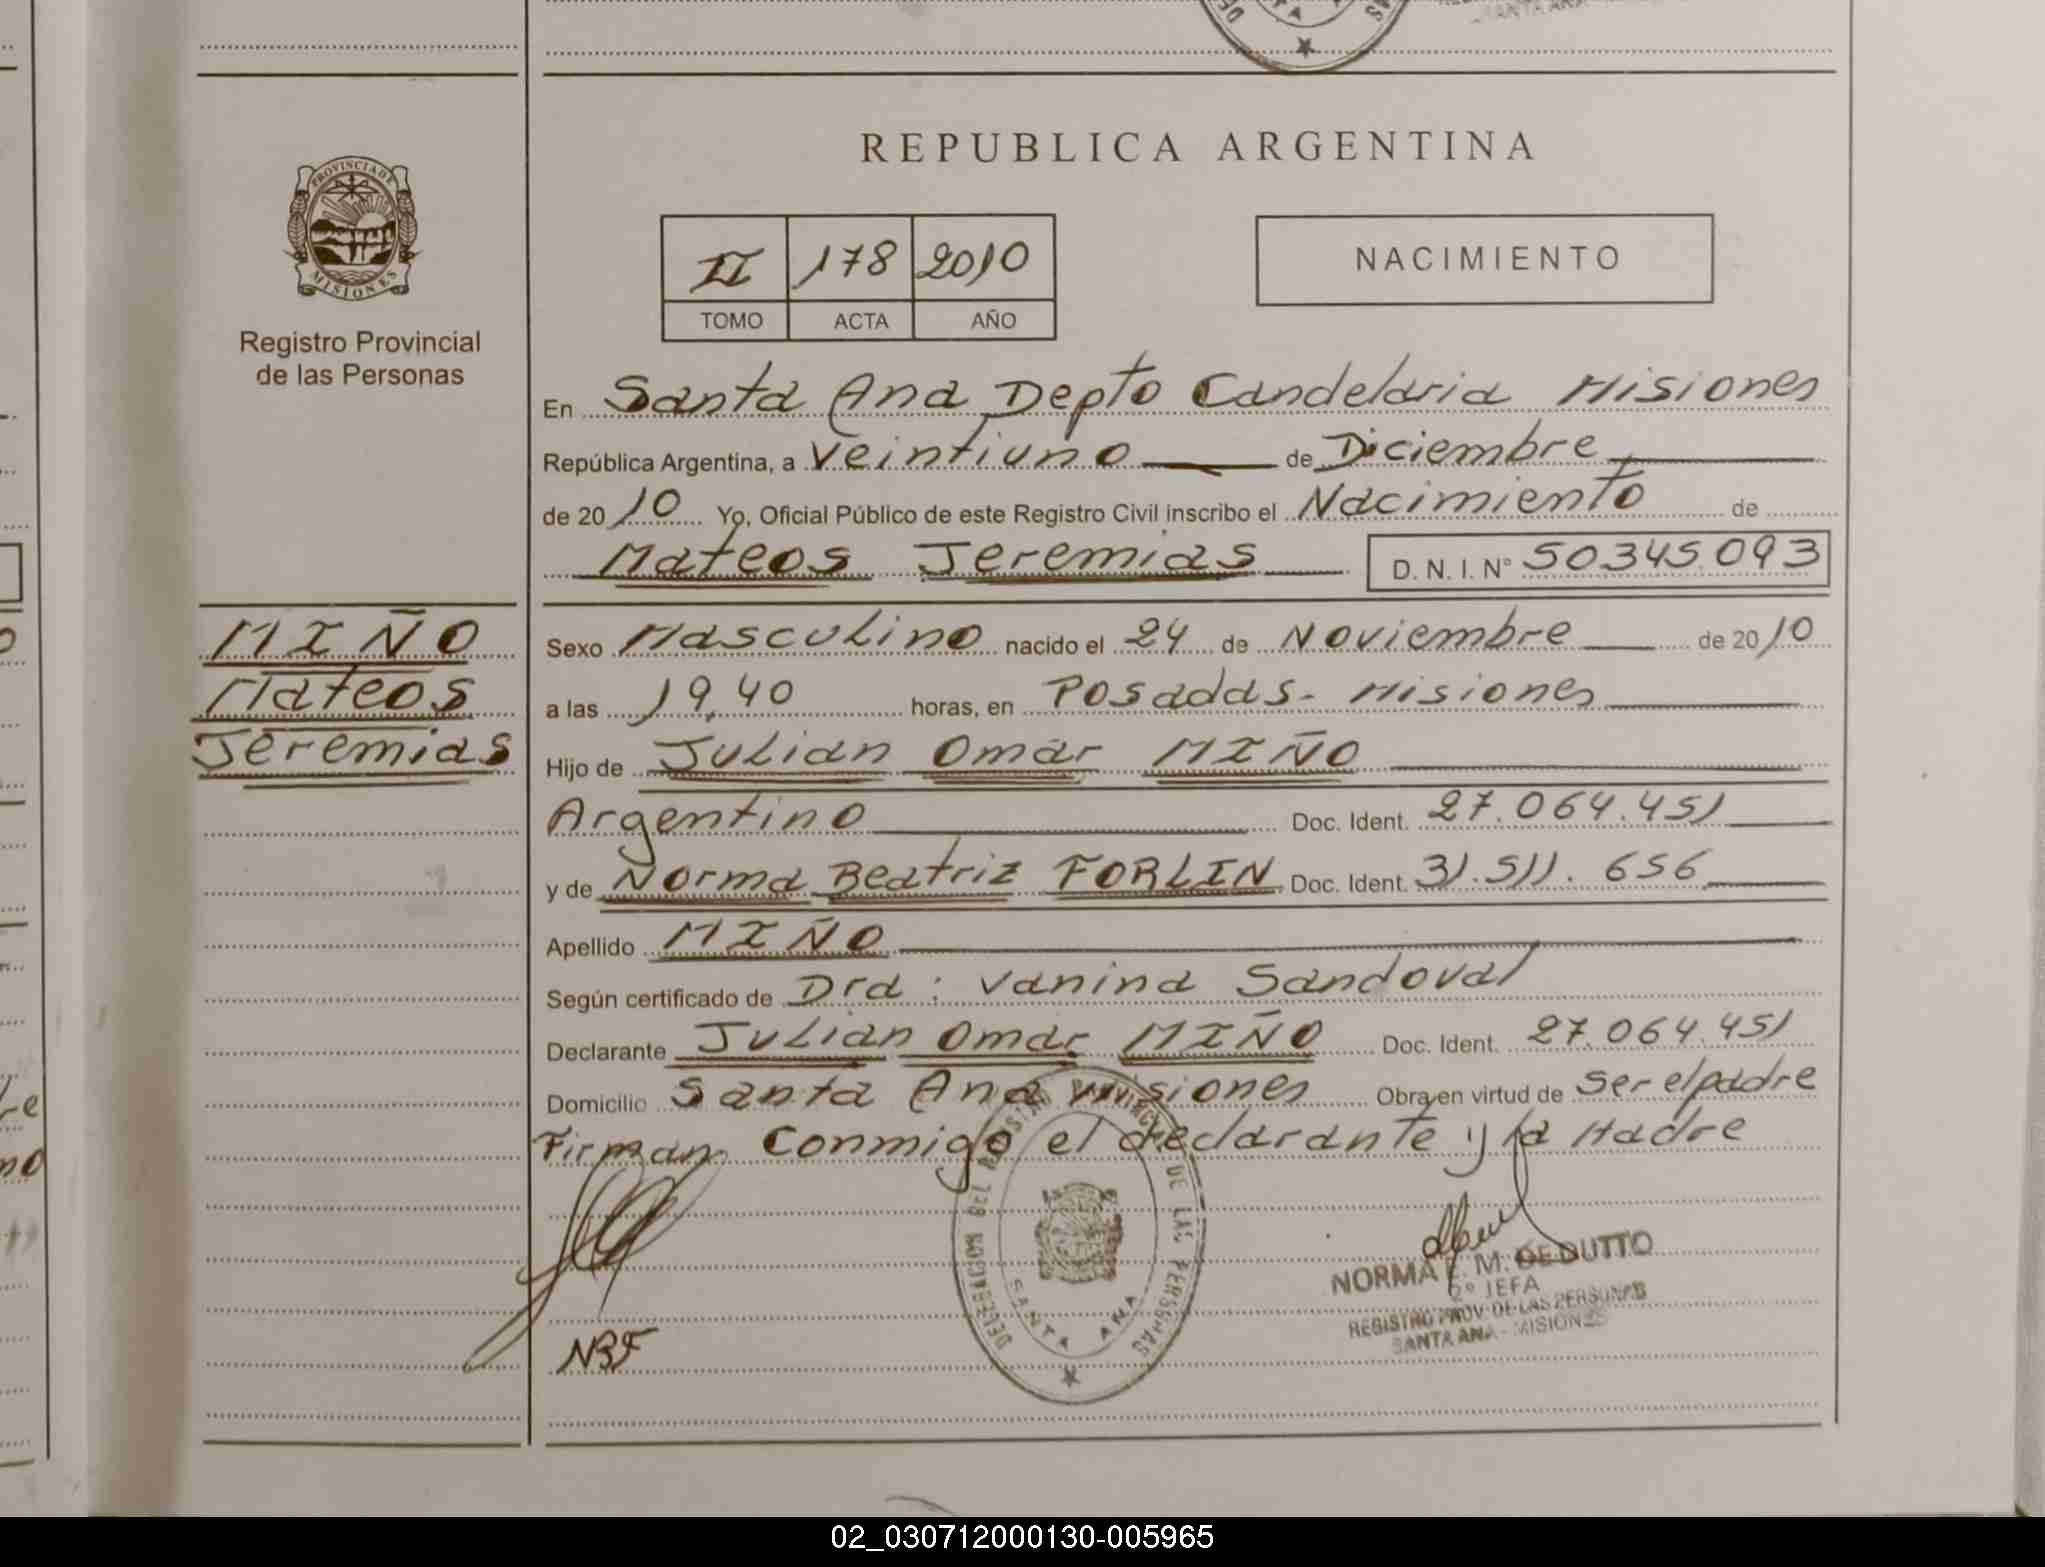 REPUBLICA ARGENTINA
PROVINCIA DE
MISIONES
Registro Provincial
de las Personas
II 178 2010
TOMO ACTA AÑO
NACIMIENTO
En Santa Ana Depto Candelaria Misiones
República Argentina, a Veintiuno de Diciembre
de 2010 Yo, Oficial Público de este Registro Civil inscribo el Nacimiento de
Mateos Jeremias D. N. I. N° 50345093
MIÑO
Mateos
Jeremias
Sexo Masculino nacido el 24 de Noviembre de 2010
a las 19,40 horas, en Posadas- Misiones
Hijo de Julian Omar MIÑO
Argentino Doc. Ident. 27.064.451
y de Norma Beatriz FORLIN Doc. Ident. 31.511.656
Apellido MIÑO
Según certificado de Dra: Vanina Sandoval
Declarante Julian Omar MIÑO Doc. Ident. 27.064.451
Domicilio Santa Ana Misiones Obra en virtud de ser el padre
Firman Conmigo el declarante y la Madre
DELEGACION DEL REGISTRO PROVINCIAL DE LAS PERSONAS
SANTA ANA
NORMA M. DEDUTTO
2° JEFA
REGISTRO PROV. DE LAS PERSONAS
SANTA ANA - MISIONES
NBF
02_030712000130-005965